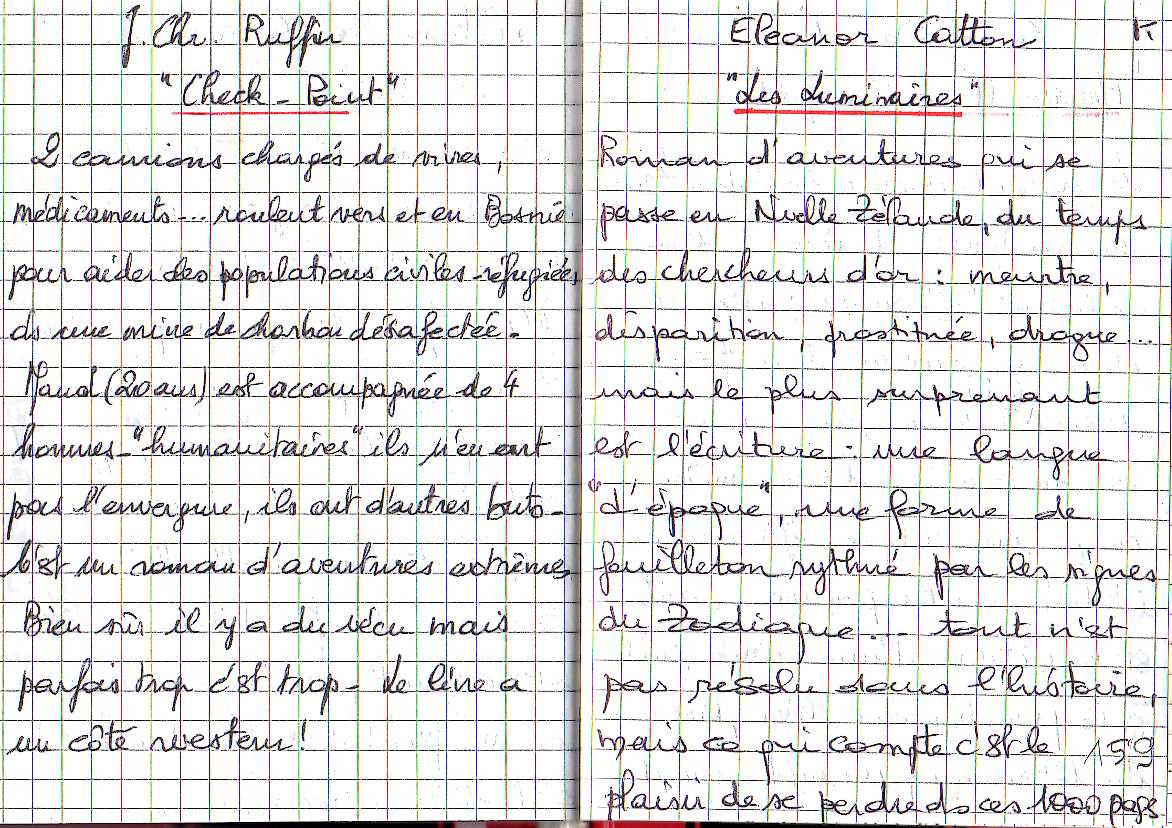 J. Chr. Ruffin
"Check-Point"
2 camions chargés de vivres,
médicaments... roulent vers et en Bosnie
pour aider des populations civiles réfugiées
ds une mine de charbon désafectée.
Maud (20 ans) est accompagnée de 4
hommes - "humanitaires" ils n'en ont
pas l'envergure, ils ont d'autres buts -
C'est un roman d'aventures extrêmes
Bien sûr il y a du vécu mais
parfois trop c'est trop - Le livre a
un côté western!
Eleanor Catton K
"Les Luminaires"
Roman d'aventures qui se
passe en Nvelle Zélande, du temps
des chercheurs d'or : meurtre,
disparition, prostituée, drogue...
mais le plus surprenant
est l'écriture : une langue
"d'époque", une forme de
feuilleton rythmé par les signes
du Zodiaque... tout n'est
pas résolu dans l'histoire,
mais ce qui compte c'est le 159
plaisir de se perdre ds ces 1000 pages